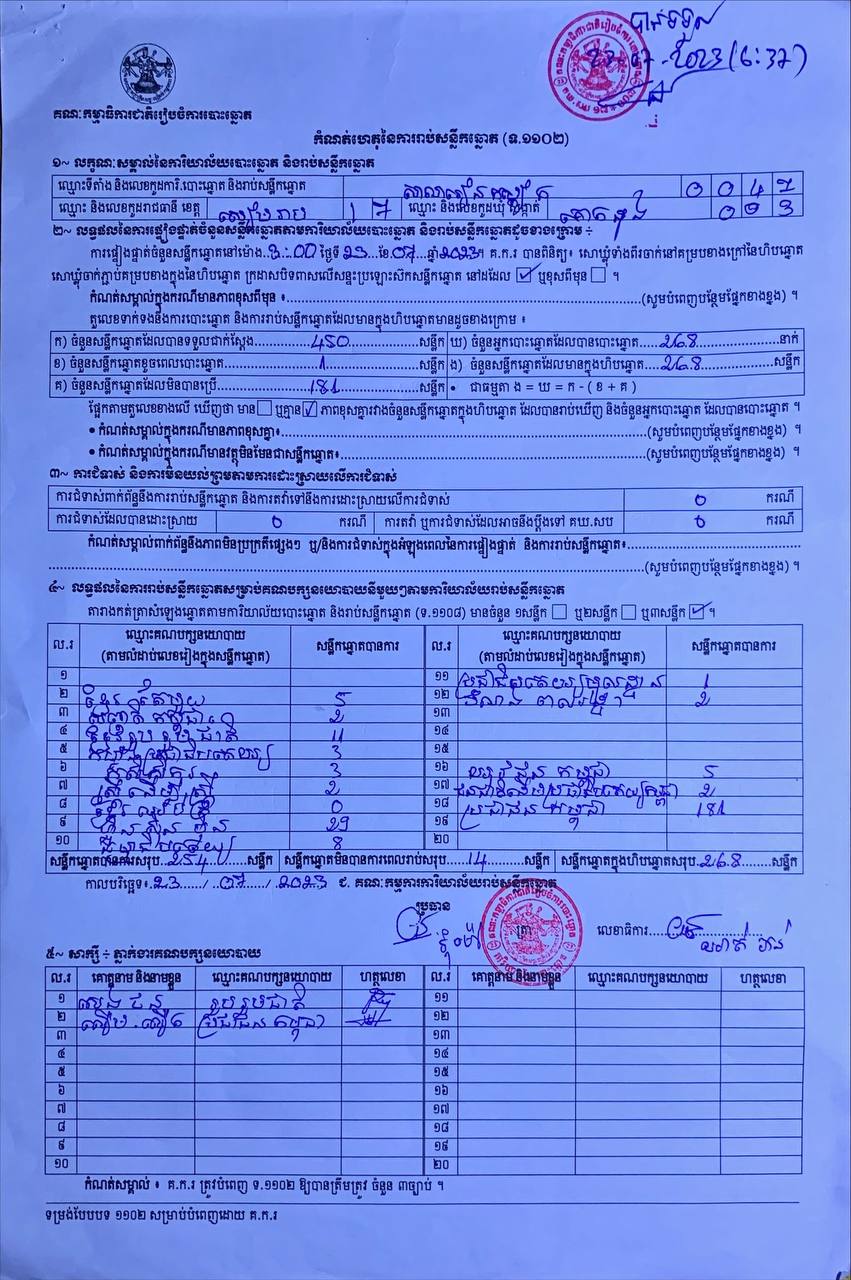 បានទទួល
23-07-2023 (6:37)
គណៈកម្មាធិការជាតិរៀបចំការបោះឆ្នោត
កំណត់ហេតុនៃការរាប់សន្លឹកឆ្នោត (ទ.១១០២)
១~ លក្ខណៈសម្គាល់នៃការិយាល័យបោះឆ្នោត និងរាប់សន្លឹកឆ្នោត
ឈ្មោះទីតាំង និងលេខកូដការិ.បោះឆ្នោត និងរាប់សន្លឹកឆ្នោត សាលារៀន 0 0 4 7
ឈ្មោះ និងលេខកូដរាជធានី ខេត្ត សៀមរាប 1 7 ឈ្មោះ និងលេខកូដឃុំ សង្កាត់ គោក
២~ លទ្ធផលនៃការផ្ទៀងផ្ទាត់ចំនួនសន្លឹកឆ្នោតតាមការិយាល័យបោះឆ្នោត និងរាប់សន្លឹកឆ្នោតដូចខាងក្រោម ÷
ការផ្ទៀងផ្ទាត់ចំនួនសន្លឹកឆ្នោតនៅម៉ោង..3:00 ថ្ងៃទី 23 ខែ 07 ឆ្នាំ 2023។ គ.ក.រ បានពិនិត្យ៖ សោឃ្លុំទាំងពីរចាក់នៅគម្របខាងក្រៅនៃហិបឆ្នោត
សោឃ្លុំចាក់ភ្ជាប់គម្របខាងក្នុងនៃហិបឆ្នោត ក្រដាសបិទពាសលើសន្ទះប្រឡោះស៊កសន្លឹកឆ្នោត នៅដដែល ☑ ឬខុសពីមុន ☐ ។
កំណត់សម្គាល់ក្នុងករណីមានភាពខុសពីមុន ៖ (សូមបំពេញបន្ថែមផ្នែកខាងខ្នង) ។
តួលេខទាក់ទងនឹងការបោះឆ្នោត និងការរាប់សន្លឹកឆ្នោតដែលមានក្នុងហិបឆ្នោតមានដូចខាងក្រោម ៖
ក) ចំនួនសន្លឹកឆ្នោតដែលបានទទួលជាក់ស្តែង 450 សន្លឹក ឃ) ចំនួនអ្នកបោះឆ្នោតដែលបានបោះឆ្នោត 268 នាក់
ខ) ចំនួនសន្លឹកឆ្នោតខូចពេលបោះឆ្នោត 1 សន្លឹក ង) ចំនួនសន្លឹកឆ្នោតដែលមានក្នុងហិបឆ្នោត 268 សន្លឹក
គ) ចំនួនសន្លឹកឆ្នោតដែលមិនបានប្រើ 181 សន្លឹក • ជាធម្មតា ង = ឃ = ក - ( ខ + គ )
ផ្អែកតាមតួលេខខាងលើ ឃើញថា មាន ☐ ឬគ្មាន ☑ ភាពខុសគ្នារវាងចំនួនសន្លឹកឆ្នោតក្នុងហិបឆ្នោត ដែលបានរាប់ឃើញ និងចំនួនអ្នកបោះឆ្នោត ដែលបានបោះឆ្នោត ។
• កំណត់សម្គាល់ក្នុងករណីមានភាពខុសគ្នា៖ (សូមបំពេញបន្ថែមផ្នែកខាងខ្នង) ។
• កំណត់សម្គាល់ក្នុងករណីមានវត្ថុមិនមែនជាសន្លឹកឆ្នោត៖ (សូមបំពេញបន្ថែមផ្នែកខាងខ្នង) ។
៣~ ការជំទាស់ និងការមិនយល់ព្រមតាមការដោះស្រាយលើការជំទាស់
ការជំទាស់ពាក់ព័ន្ធនឹងការរាប់សន្លឹកឆ្នោត និងការតវ៉ាទៅនឹងការដោះស្រាយលើការជំទាស់ 0 ករណី
ការជំទាស់ដែលបានដោះស្រាយ 0 ករណី ការតវ៉ា ឬការជំទាស់ដែលអាចនឹងប្តឹងទៅ គឃ.សប 0 ករណី
កំណត់សម្គាល់ពាក់ព័ន្ធនឹងភាពមិនប្រក្រតីផ្សេងៗ ឬ/និងការជំទាស់ក្នុងអំឡុងពេលនៃការផ្ទៀងផ្ទាត់ និងការរាប់សន្លឹកឆ្នោត៖
(សូមបំពេញបន្ថែមផ្នែកខាងខ្នង) ។
៤~ លទ្ធផលនៃការរាប់សន្លឹកឆ្នោតសម្រាប់គណបក្សនយោបាយនីមួយៗតាមការិយាល័យរាប់សន្លឹកឆ្នោត
តារាងកត់ត្រាសំឡេងឆ្នោតតាមការិយាល័យបោះឆ្នោត និងរាប់សន្លឹកឆ្នោត (ទ.១១០៨) មានចំនួន ១សន្លឹក ☐ ឬ២សន្លឹក ☐ ឬ៣សន្លឹក ☑ ។
ល.រ ឈ្មោះគណបក្សនយោបាយ (តាមលំដាប់លេខរៀងក្នុងសន្លឹកឆ្នោត) សន្លឹកឆ្នោតបានការ ល.រ ឈ្មោះគណបក្សនយោបាយ (តាមលំដាប់លេខរៀងក្នុងសន្លឹកឆ្នោត) សន្លឹកឆ្នោតបានការ
១ ១១ ប្រជាធិបតេយ្យមូលដ្ឋាន 1
២ ខ្មែរ តែមួយ 5 ១២ 2
៣ សញ្ជាតិ កម្ពុជា 2 ១៣
៤ រួបរួមជាតិ 11 ១៤
៥ កម្លាំងប្រជាធិបតេយ្យ 3 ១៥
៦ កសិករ 3 ១៦ យុវជន កម្ពុជា 5
៧ ស្ត្រី ដើម្បី ស្ត្រី 2 ១៧ 2
៨ 0 ១៨ ប្រជាជន កម្ពុជា 181
៩ ហ៊្វុនស៊ិនប៉ិច 29 ១៩
១០ 8 ២០
សន្លឹកឆ្នោតបានការសរុប 254 សន្លឹក សន្លឹកឆ្នោតមិនបានការពេលរាប់សរុប 14 សន្លឹក សន្លឹកឆ្នោតក្នុងហិបឆ្នោតសរុប 268 សន្លឹក
កាលបរិច្ឆេទ៖ 23 / 07 / 2023 ជ. គណៈកម្មការការិយាល័យរាប់សន្លឹកឆ្នោត
ប្រធាន ត្រា លេខាធិការ
៥~ សាក្សី ÷ ភ្នាក់ងារគណបក្សនយោបាយ
ល.រ គោត្តនាម និងនាមខ្លួន ឈ្មោះគណបក្សនយោបាយ ហត្ថលេខា ល.រ គោត្តនាម និងនាមខ្លួន ឈ្មោះគណបក្សនយោបាយ ហត្ថលេខា
១ សេង ជន រួបរួមជាតិ ១១
២ ប្រជាជន កម្ពុជា ១២
៣ ១៣
៤ ១៤
៥ ១៥
៦ ១៦
៧ ១៧
៨ ១៨
៩ ១៩
១០ ២០
កំណត់សម្គាល់ ៖ គ.ក.រ ត្រូវបំពេញ ទ.១១០២ ឱ្យបានត្រឹមត្រូវ ចំនួន ៣ច្បាប់ ។
ទម្រង់បែបបទ ១១០២ សម្រាប់បំពេញដោយ គ.ក.រ